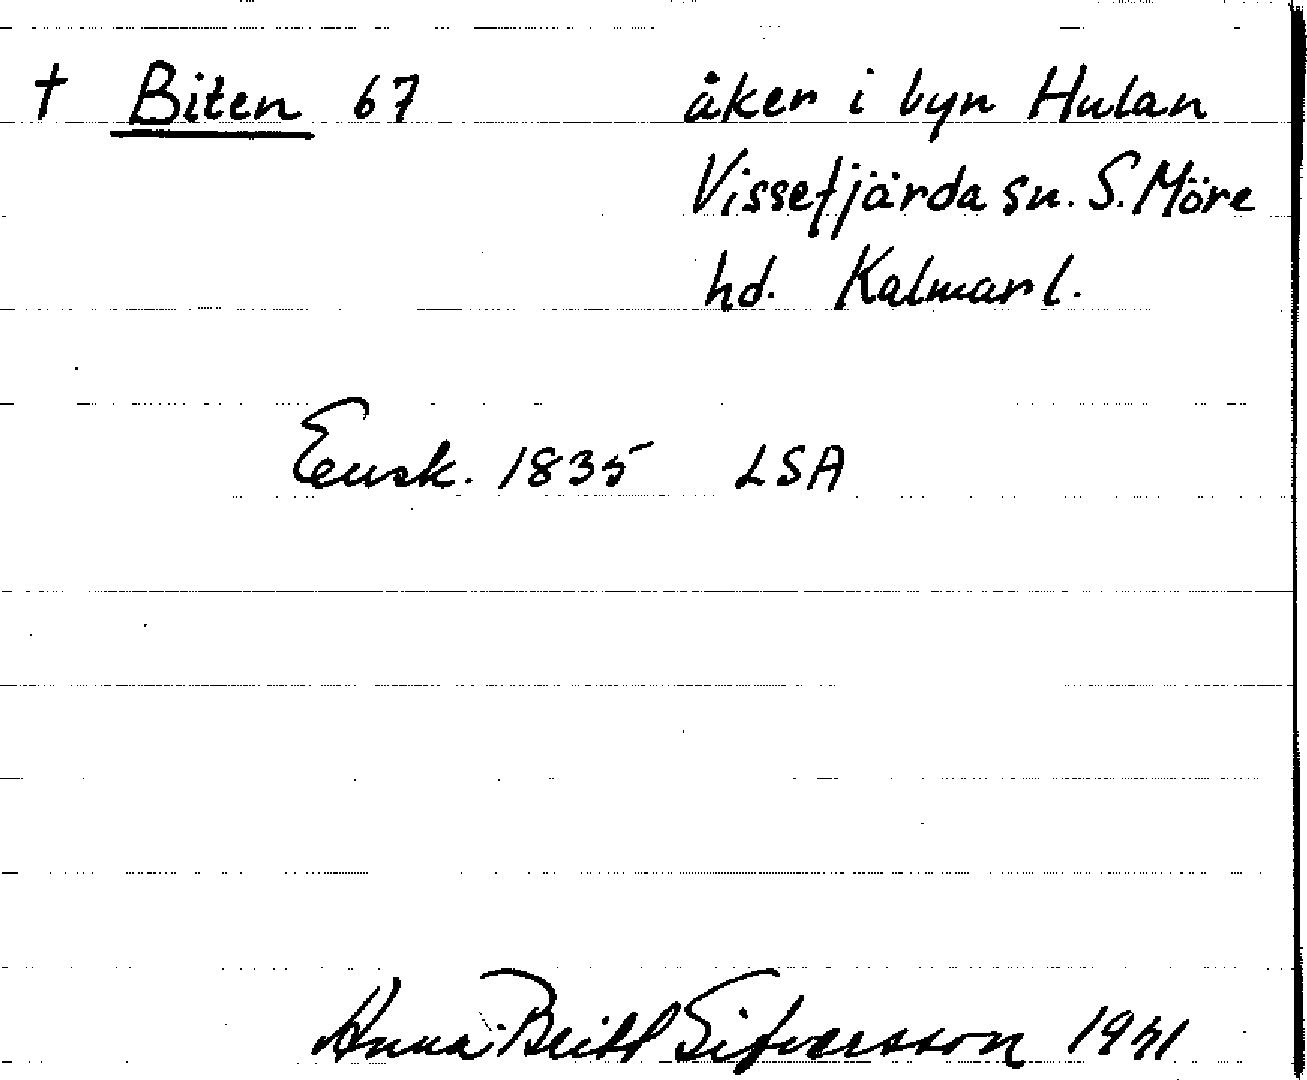 † Biten 67 åker i byn Hulan
Vissefjärda sn. S. Möre
hd. Kalmar l.
Ensk. 1835 LSA
Anna Britt Sifvarsson 1971